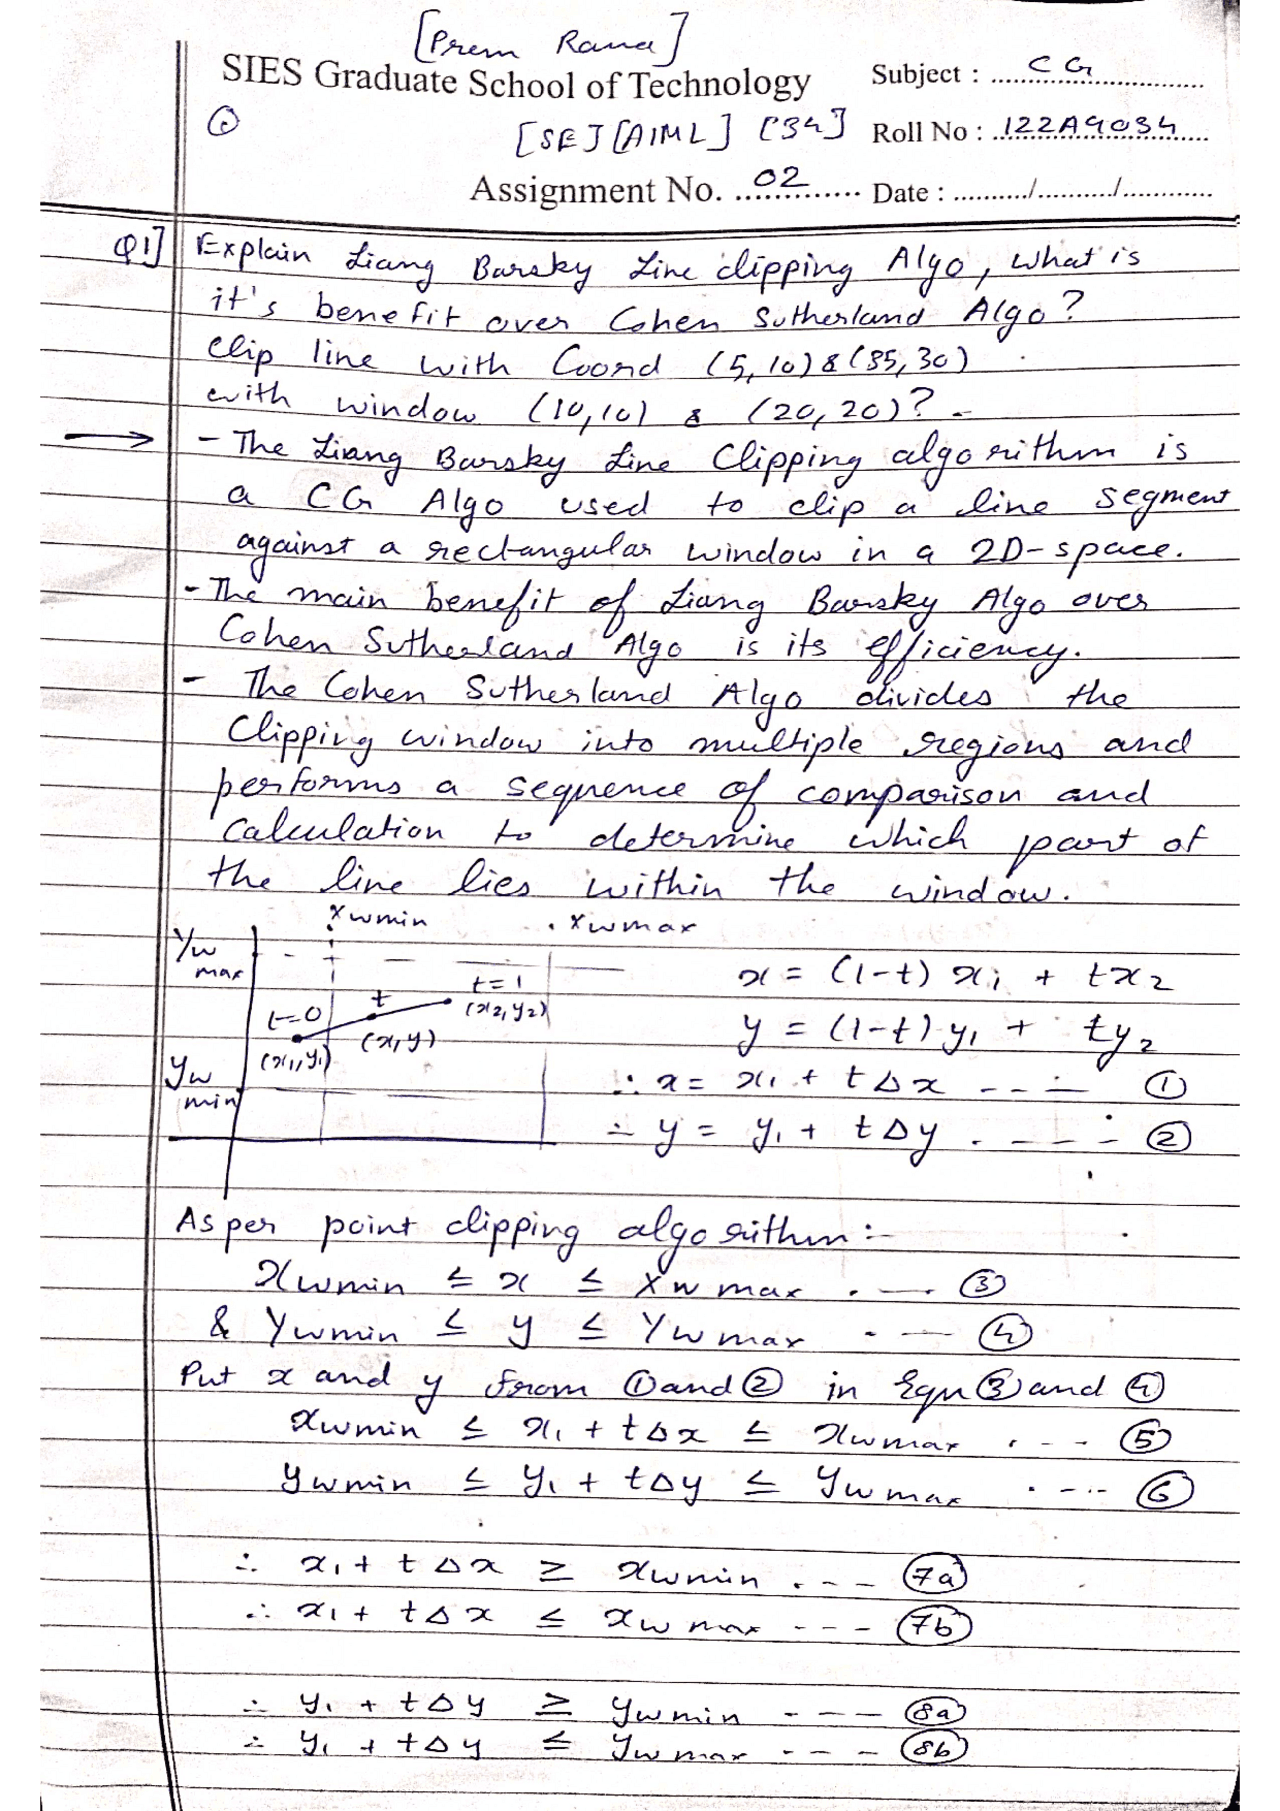 [Prem Rana]
SIES Graduate School of Technology
Subject : CG
[SE] [AIML] [34]
Roll No : 122A9034
Assignment No. 02
Date : ........../........../............
Q1] Explain Liang Barsky Line clipping Algo, what is
it's benefit over Cohen Sutherland Algo?
Clip line with Coord (5,10) & (35,30)
with window (10,10) & (20,20)?
→ - The Liang Barsky Line Clipping algorithm is
a CG Algo used to clip a line segment
against a rectangular window in a 2D-space.
- The main benefit of Liang Barsky Algo over
Cohen Sutherland Algo is its efficiency.
- The Cohen Sutherland Algo divides the
Clipping window into multiple regions and
performs a sequence of comparison and
calculation to determine which part of
the line lies within the window.
xwmin xwmax
Yw max
t=0 t t=1
(x1,y1) (x,y) (x2,y2)
Yw min
x = (1-t) x1 + tx2
y = (1-t) y1 + ty2
∴ x = x1 + tΔx ---- ①
∴ y = y1 + tΔy ---- ②
As per point clipping algorithm:-
xwmin ≤ x ≤ xwmax --- ③
& Ywmin ≤ y ≤ Ywmax --- ④
Put x and y from ① and ② in Eqn ③ and ④
xwmin ≤ x1 + tΔx ≤ xwmax --- ⑤
ywmin ≤ y1 + tΔy ≤ ywmax ---- ⑥
∴ x1 + tΔx ≥ xwmin ---- 7a
∴ x1 + tΔx ≤ xwmax --- 7b
∴ y1 + tΔy ≥ ywmin ---- 8a
∴ y1 + tΔy ≤ ywmax ---- 8b